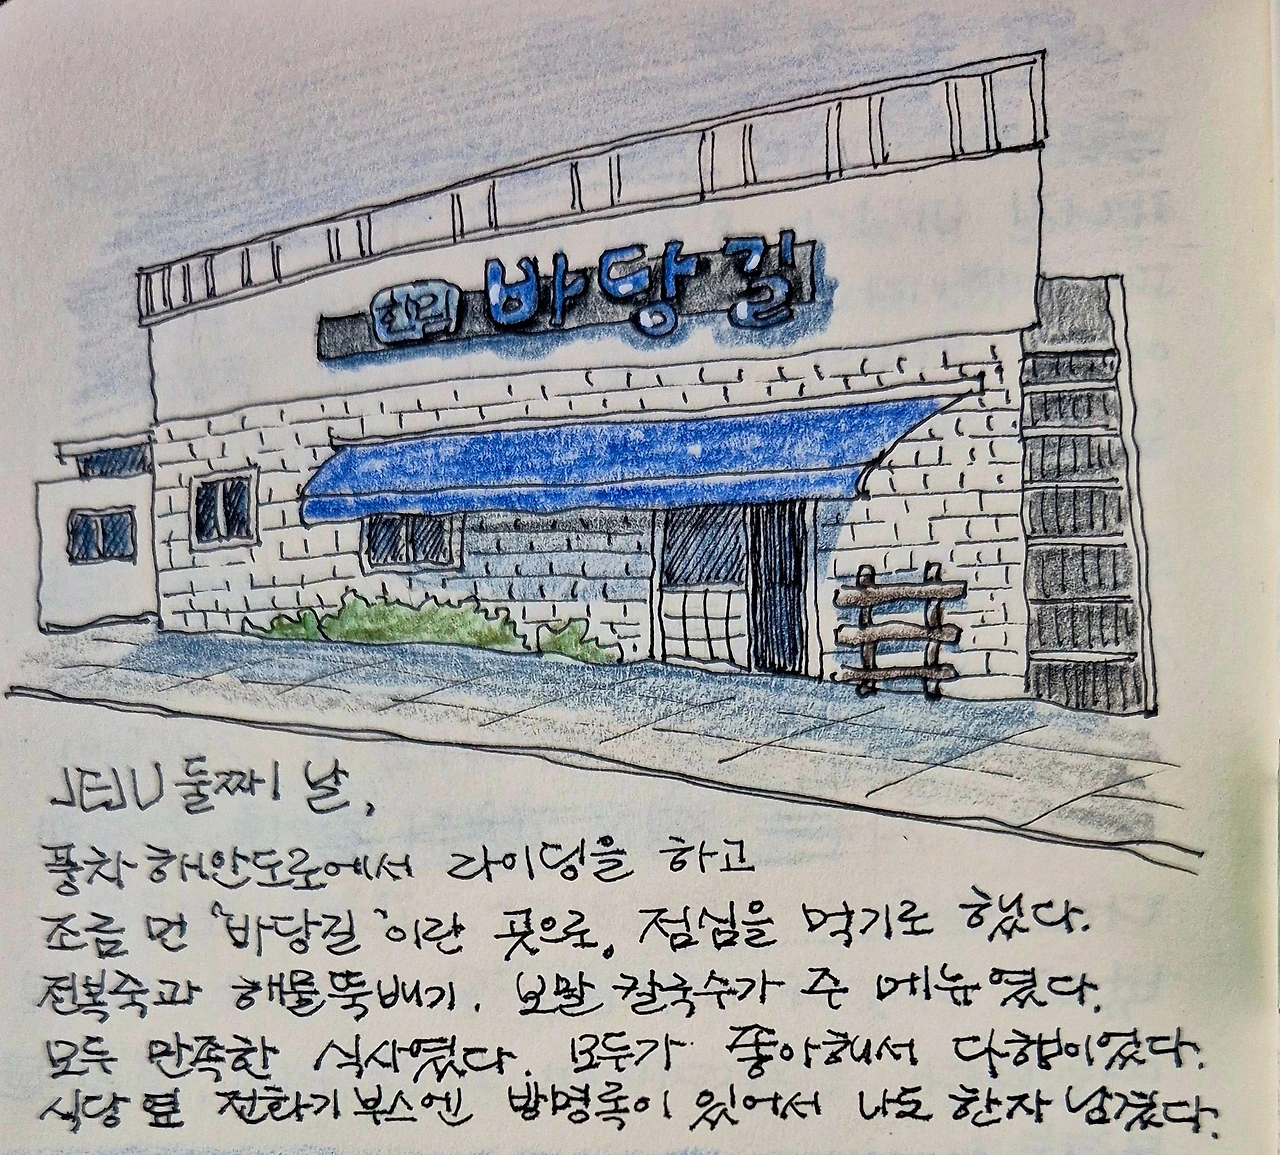 한림 바당길
JEJU 둘째 날,
풍차 해안도로에서 라이딩을 하고
조금 먼 '바당길'이란 곳으로, 점심을 먹기로 했다.
전복죽과 해물뚝배기. 보말 칼국수가 주 메뉴였다.
모두 만족한 식사였다. 모두가 좋아해서 다행이었다.
식당 옆 전화기 부스엔 방명록이 있어서 나도 한자 남겼다.